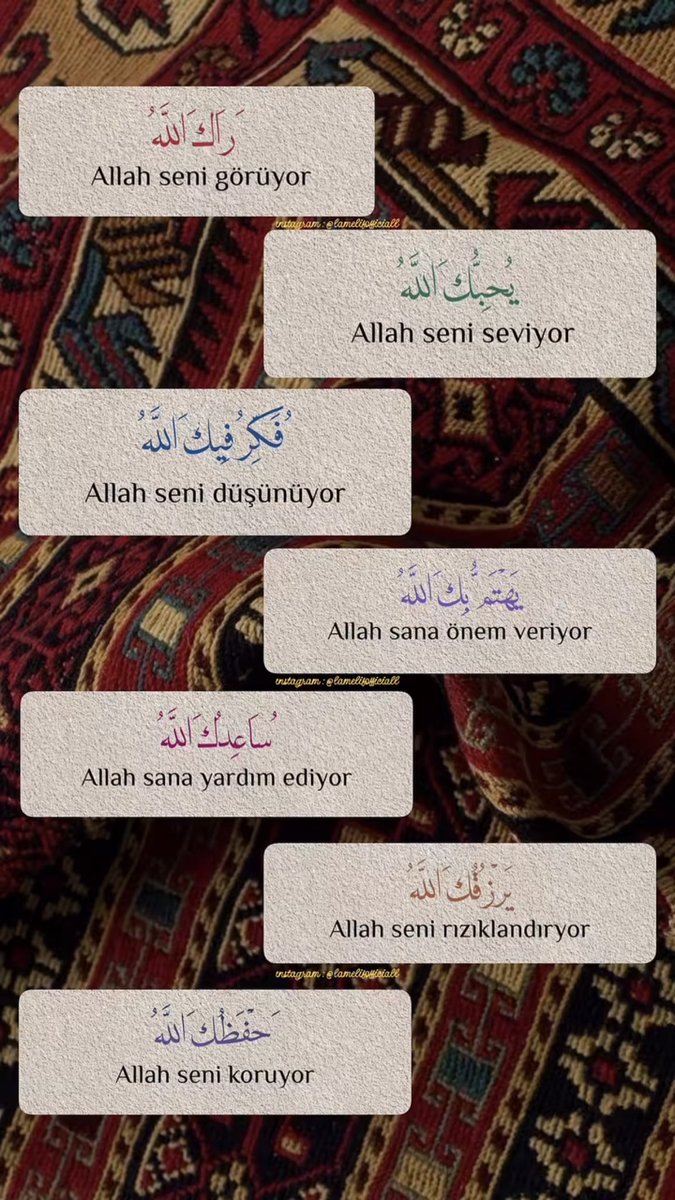 َراَكَ اللَّهُ
Allah seni görüyor
instagram : @lamelifofficiall
يُحِبُّكَ اللَّهُ
Allah seni seviyor
ُفَكِرُ فِيكَ اللَّهُ
Allah seni düşünüyor
يَهْتَمُّ بِكَ اللَّهُ
Allah sana önem veriyor
instagram : @lamelifofficiall
ُسَاعِدُكَ اللَّهُ
Allah sana yardım ediyor
يَرْزُقُكَ اللَّهُ
Allah seni rızıklandıryor
instagram : @lamelifofficiall
َحْفَظُكَ اللَّهُ
Allah seni koruyor